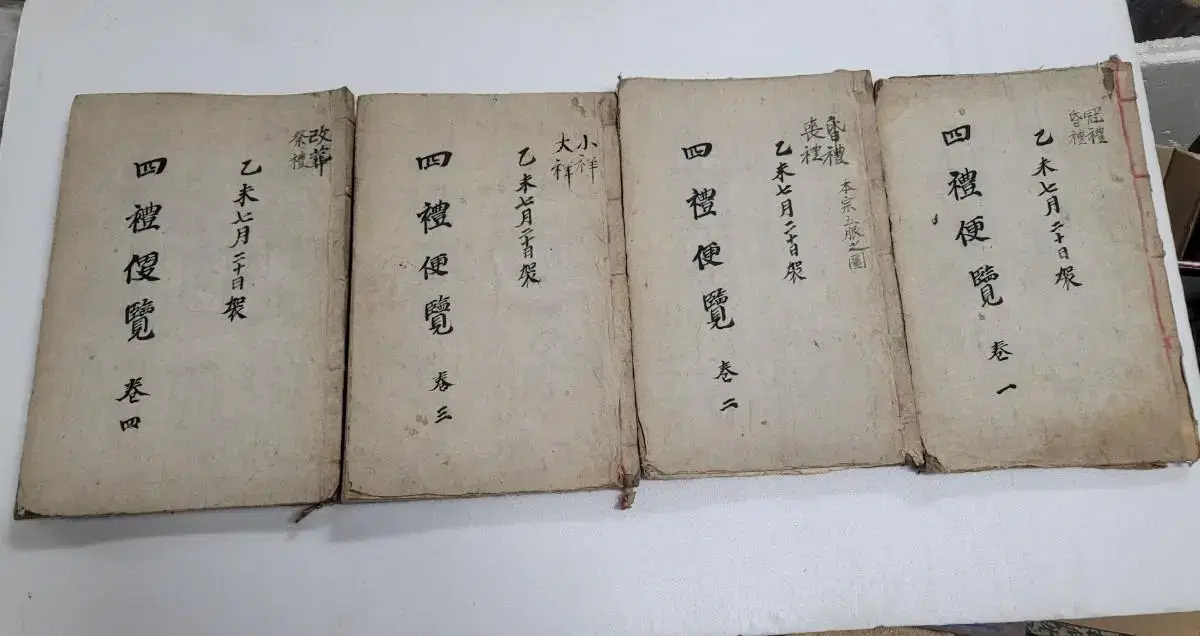 冠禮
昏禮
乙未七月二十日
四禮便覽 卷一
昏禮
喪禮
本宗五服之圖
乙未七月二十日
四禮便覽 卷二
小祥
大祥
乙未七月二十日
四禮便覽 卷三
改葬
祭禮
乙未七月二十日
四禮便覽 卷四